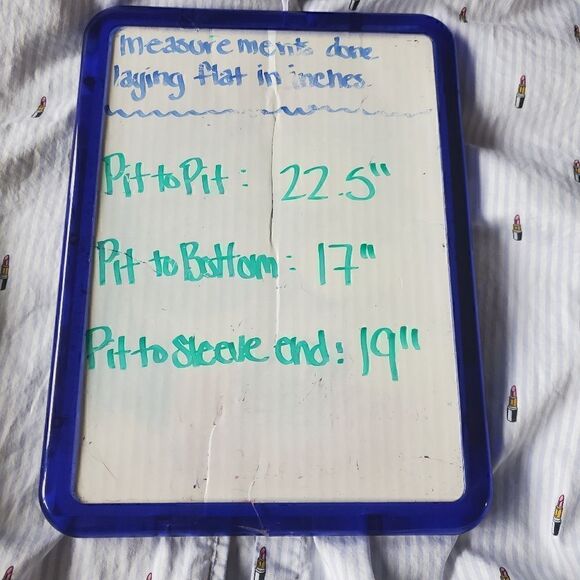 measurements done
laying flat in inches
Pit to Pit: 22.5"
Pit to Bottom: 17"
Pit to sleeve end: 19"